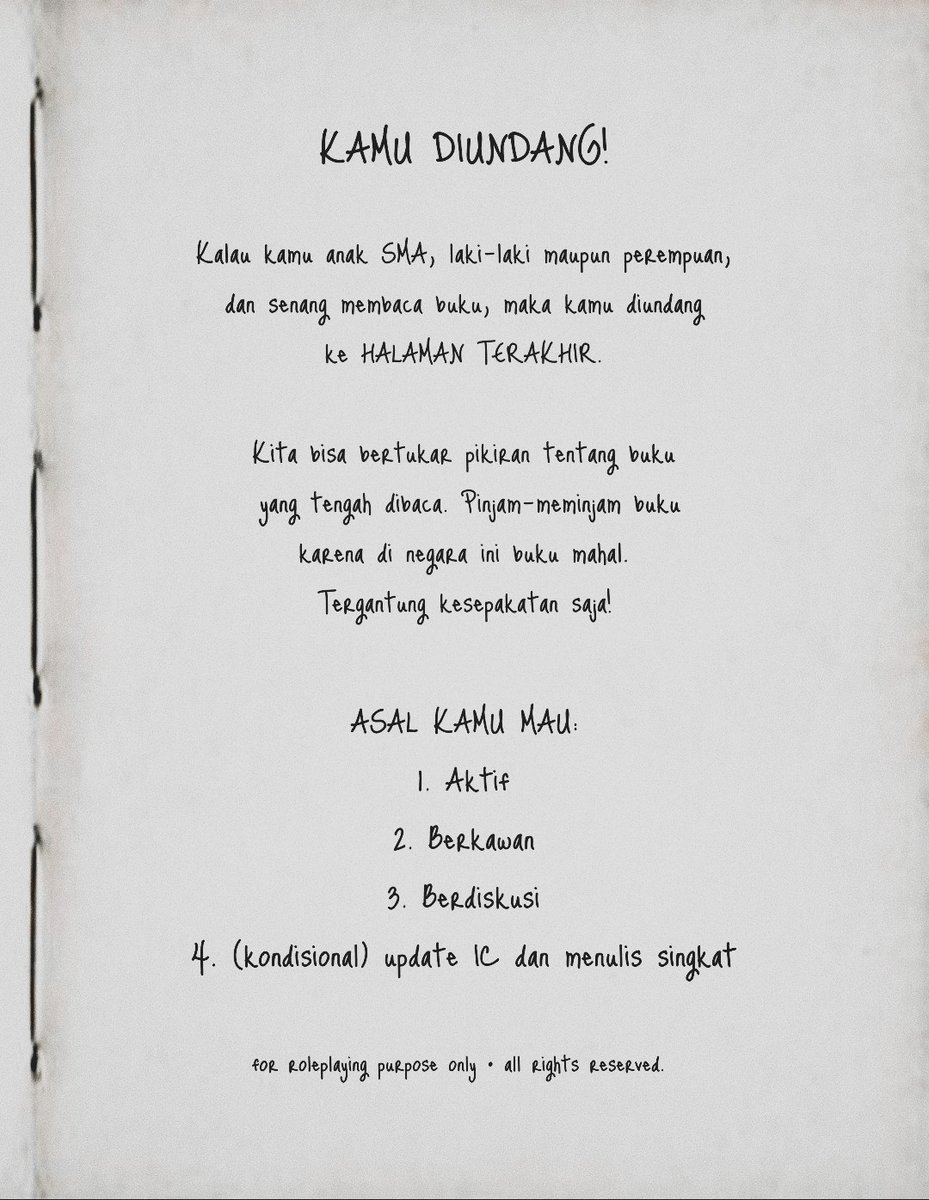 KAMU DIUNDANG!
Kalau kamu anak SMA, laki-laki maupun perempuan,
dan senang membaca buku, maka kamu diundang
ke HALAMAN TERAKHIR.
Kita bisa bertukar pikiran tentang buku
yang tengah dibaca. Pinjam-meminjam buku
karena di negara ini buku mahal.
Tergantung kesepakatan saja!
ASAL KAMU MAU:
1. Aktif
2. Berkawan
3. Berdiskusi
4. (kondisional) update IC dan menulis singkat
for roleplaying purpose only • all rights reserved.